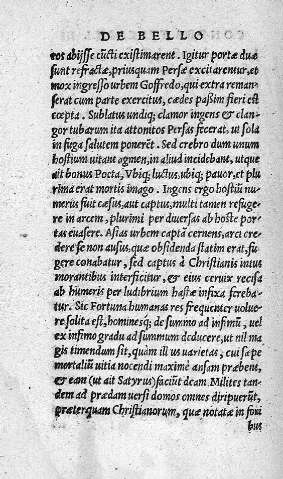 DE BELLO
eos abijsse cũcti existimarent. Igitur portæ duæ
sunt refractæ, priusquam Persæ excitarentur, et
mox ingresso urbem Goffredo, qui extra reman
serat cum parte exercitus, cædes paßim fieri est
cœpta. Sublatus undiq; clamor ingens & clan
gor tubarum ita attonitos Persas fecerat, ut sola
in fuga salutem ponerẽt. Sed crebro dum unum
hostium uitant agmen, in aliud incidebant, utque
ait bonus Poeta, Vbiq; luctus, ubiq; pauor, et plu
rima erat mortis imago. Ingens ergo hostiũ nu
merus fuit cæsus, aut captus, multi tamen refuge
re in arcem, plurimi per diuersas ab hoste por
tas euasere. Asias urbem captã cernens, arci cre
dere se non ausus, quæ obsidenda statim erat, fu
gere conabatur, sed captus à Christianis intus
morantibus interficitur, & eius ceruix recisa
ab humeris per ludibrium hastæ infixa fereba
tur. Sic Fortuna humanas res frequenter voluere
solita est, hominesq; de summo ad infimũ, uel
ex infimo gradu ad summum deducere, ut nil ma
gis timendum sit, quàm illius uarietas, cui sæpe
mortaliũ uitia nocendi maximè ansam præbent,
& eam (ut ait Satyrus) faciũt deam. Milites tan
dem ad prædam uersi domos omnes diripuerũt,
præterquam Christianorum, quæ notatæ in fori
bus